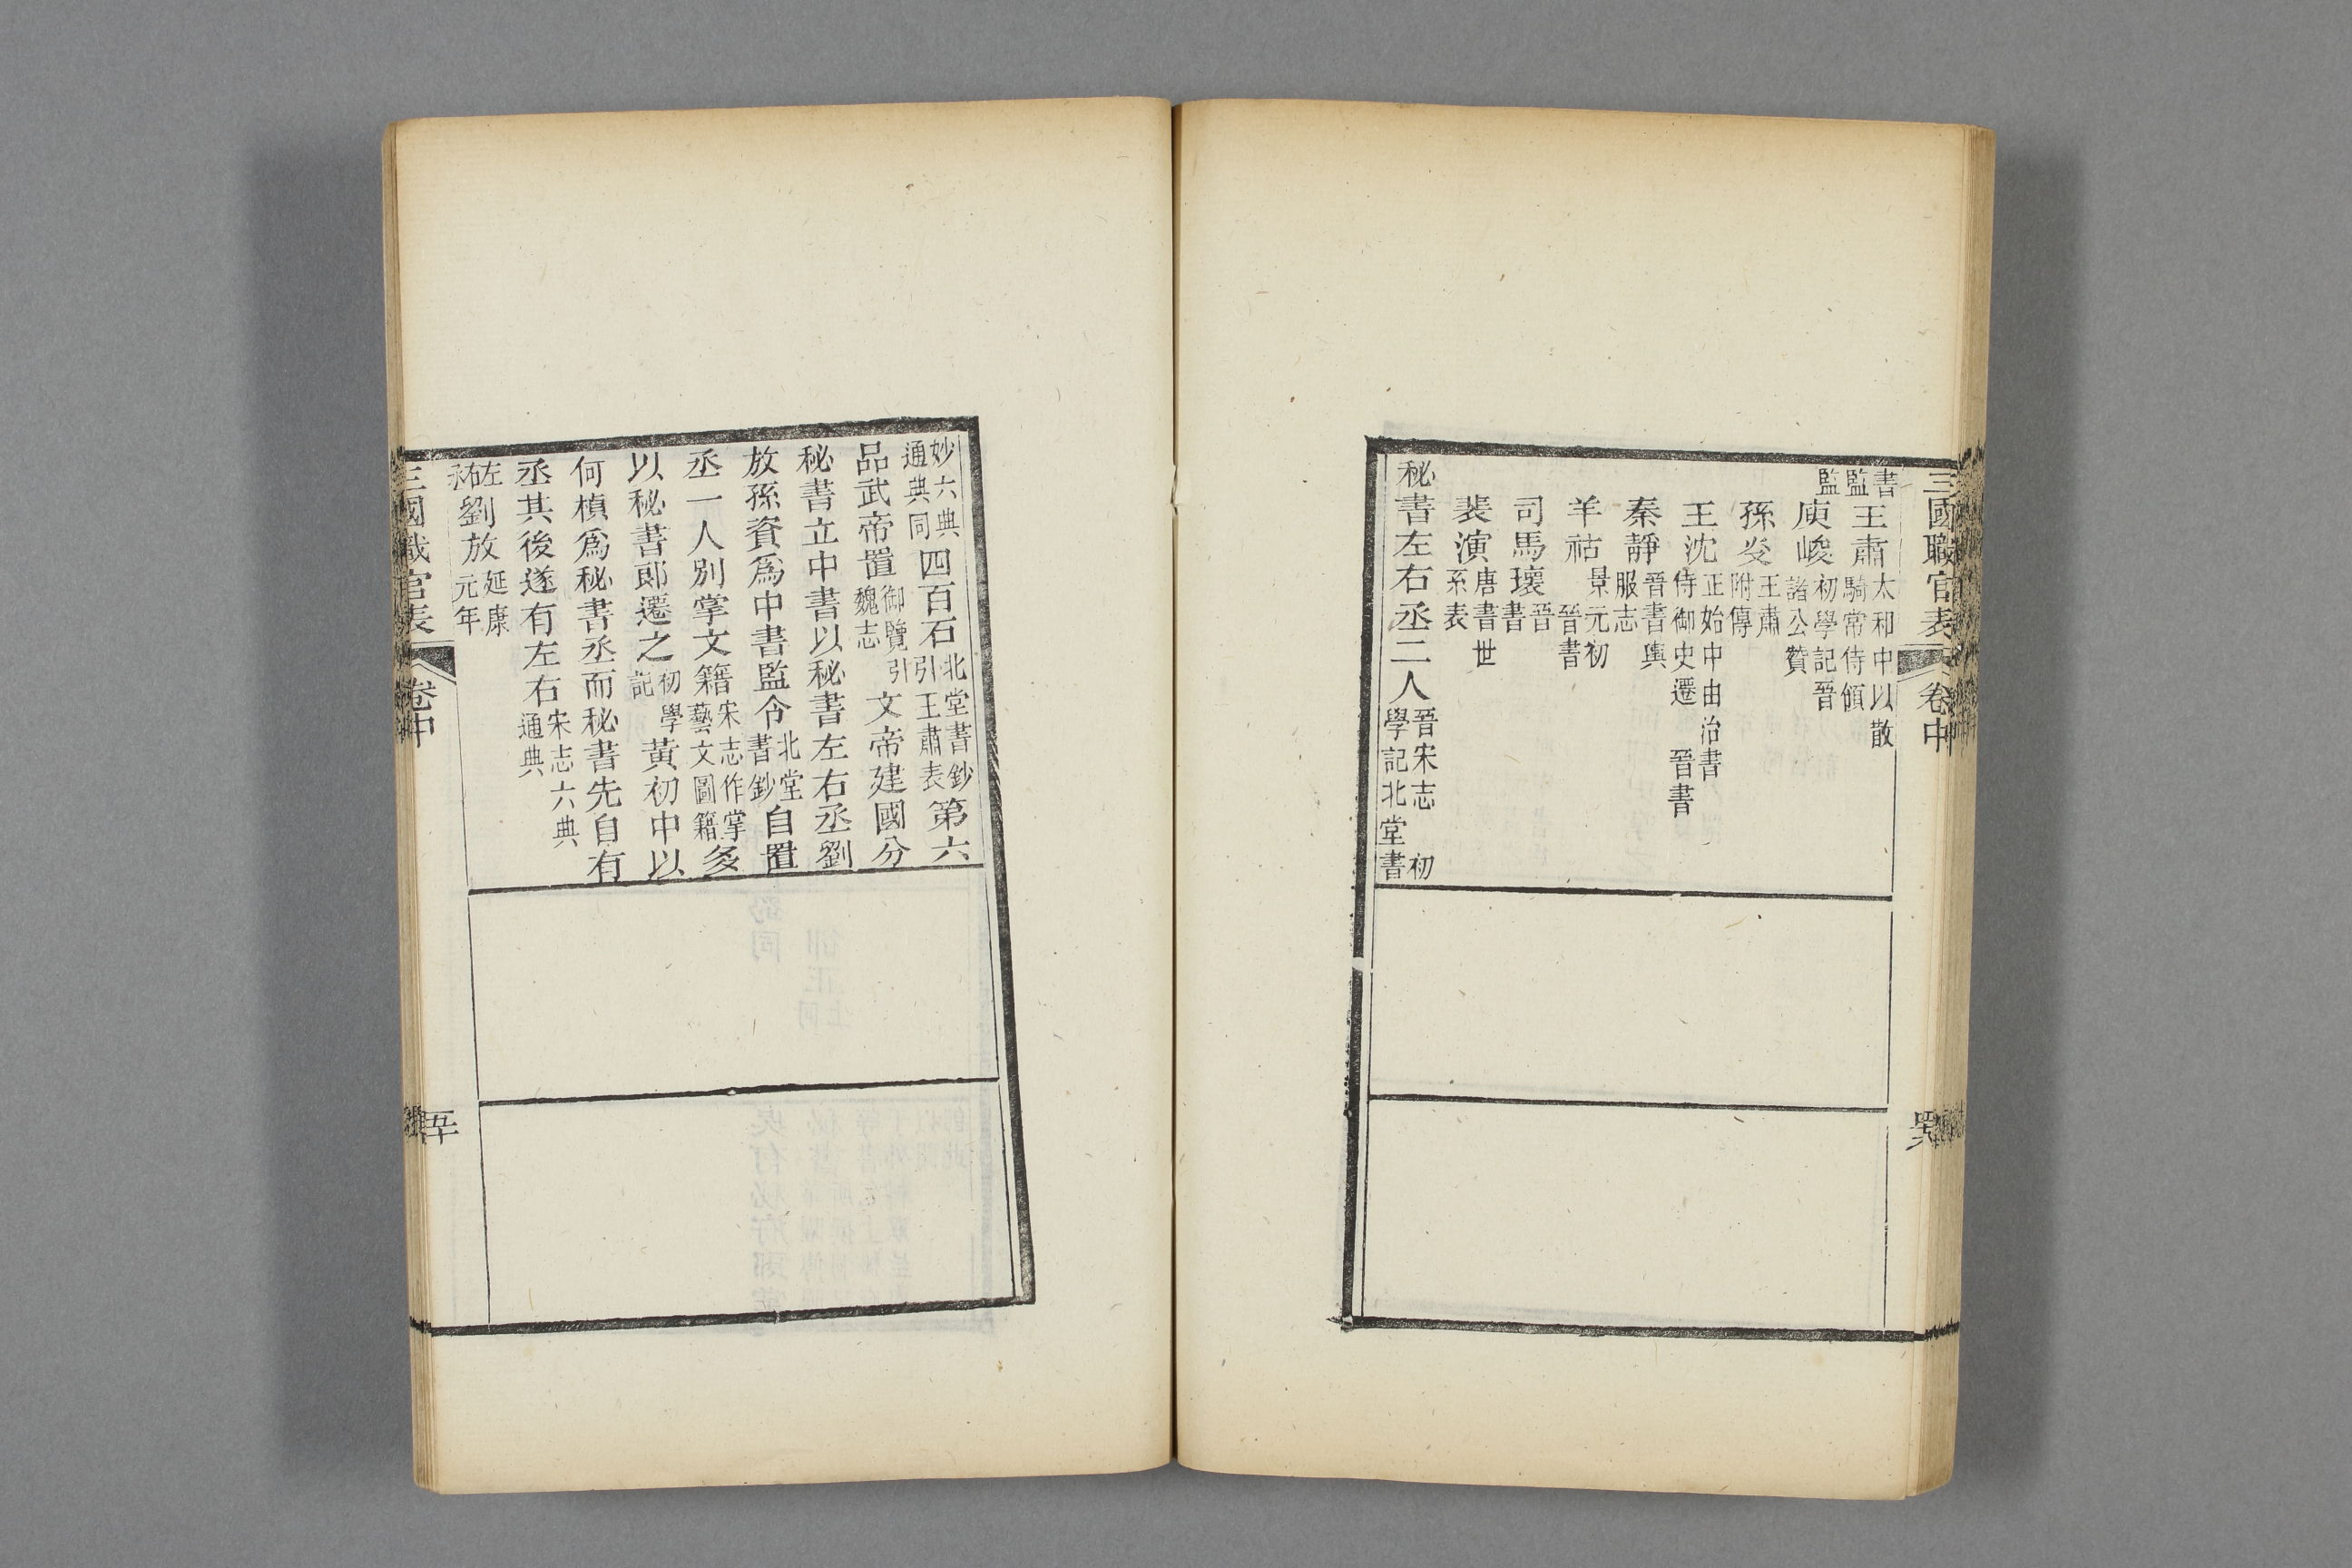 三國職官表 卷中
書監監 王肅 太和中以散騎常侍領
庾峻 初學記晉諸公贊
孫炎 王肅附傳
王沈 正始中由治書侍御史遷 晉書
秦靜 晉書輿服志
羊祜 景元初 晉書
司馬瓌 晉書
裴演 唐書世系表
秘書左右丞二人 晉宋志 初學記北堂書
妙六典通典同 四百石 北堂書鈔引王肅表 第六
品武帝置 御覽引魏志 文帝建國分
秘書立中書以秘書左右丞劉
放孫資爲中書監令 北堂書鈔 自置
丞一人別掌文籍 宋志作掌藝文圖籍 多
以秘書郎遷之 初學記 黃初中以
何楨爲秘書丞而秘書先自有
丞其後遂有左右 宋志六典通典
左右丞 劉放 延康元年
三國職官表 卷中 五十